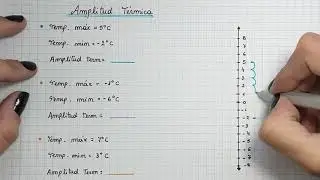 Amplitud Térmica
Temp. máx = 5°C
Temp. mín = -2°C
Amplitud term =
Temp. máx = -1°C
Temp. mín = -6°C
Amplitud term =
Temp. máx = 7°C
Temp. mín = 3°C
Amplitud term =
8
7
6
5
4
3
2
1
0
-1
-2
-3
-4
-5
-6
-7
-8